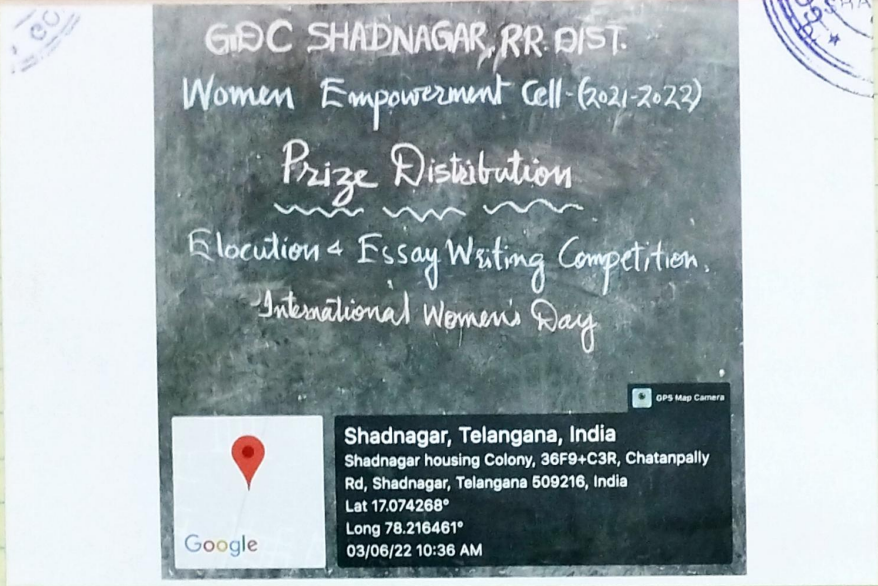 GDC SHADNAGAR, RR. DIST.
Women Empowerment Cell-(2021-2022)
Prize Distribution
Elocution & Essay Writing Competition.
International Women's Day
GPS Map Camera
Shadnagar, Telangana, India
Shadnagar housing Colony, 36F9+C3R, Chatanpally
Rd, Shadnagar, Telangana 509216, India
Lat 17.074268°
Long 78.216461°
03/06/22 10:36 AM
Google